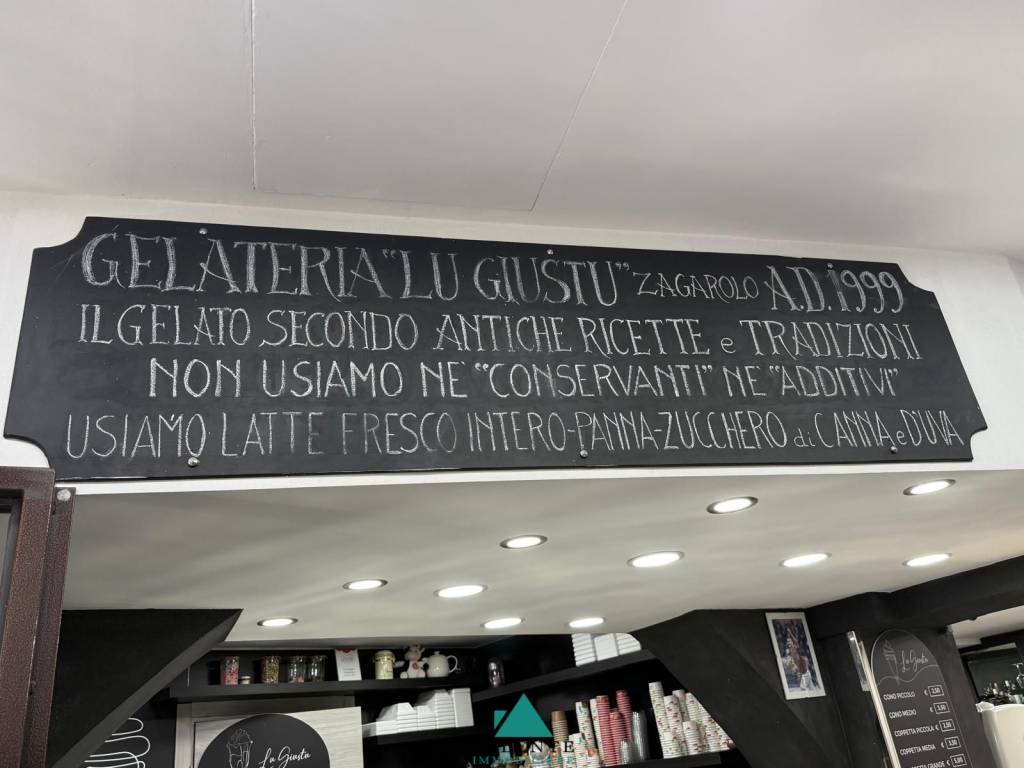 GELATERIA "LU GIUSTU" ZAGAROLO A.D. 1999
IL GELATO SECONDO ANTICHE RICETTE e TRADIZIONI
NON USIAMO NE "CONSERVANTI" NE "ADDITIVI"
USIAMO LATTE FRESCO INTERO-PANNA-ZUCCHERO di CANNA e D'UVA
Lu Giustu
Lu Giustu
CONO PICCOLO € 2,50
CONO MEDIO €
COPPETTA PICCOLA €
COPPETTA MEDIA €
GRANDE €